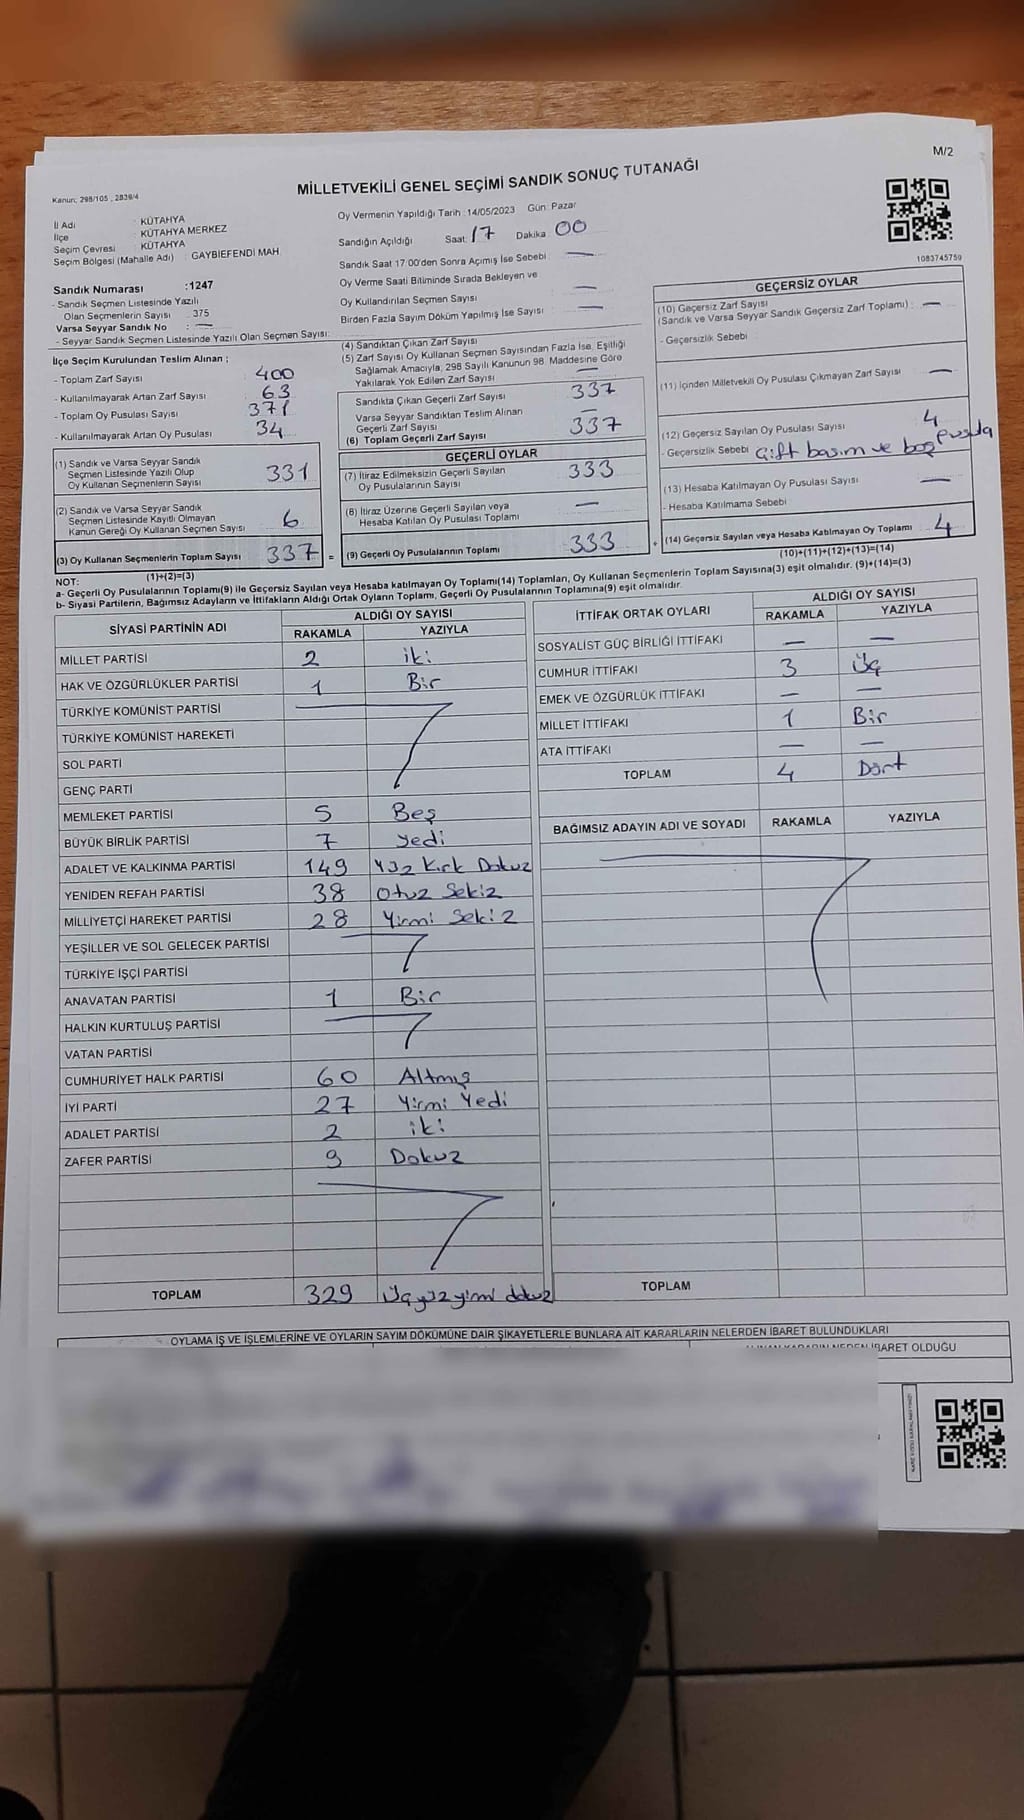 M/2
Kanun: 298/105 , 2839/4
MİLLETVEKİLİ GENEL SEÇİMİ SANDIK SONUÇ TUTANAĞI
İl Adı : KÜTAHYA
İlçe : KÜTAHYA MERKEZ
Seçim Çevresi : KÜTAHYA
Seçim Bölgesi (Mahalle Adı) : GAYBİEFENDİ MAH.
Oy Vermenin Yapıldığı Tarih : 14/05/2023 Gün: Pazar
Sandığın Açıldığı Saat: 17 Dakika 00
Sandık Saat 17:00'den Sonra Açımış İse Sebebi : —
Oy Verme Saati Bitiminde Sırada Bekleyen ve
Oy Kullandırılan Seçmen Sayısı : —
Birden Fazla Sayım Döküm Yapılmış İse Sayısı : —
1083745759
Sandık Numarası :1247
- Sandık Seçmen Listesinde Yazılı
Olan Seçmenlerin Sayısı : 375
Varsa Seyyar Sandık No : —
- Seyyar Sandık Seçmen Listesinde Yazılı Olan Seçmen Sayısı:
İlçe Seçim Kurulundan Teslim Alınan ;
- Toplam Zarf Sayısı 400
- Kullanılmayarak Artan Zarf Sayısı 63
- Toplam Oy Pusulası Sayısı 371
- Kullanılmayarak Artan Oy Pusulası 34
(1) Sandık ve Varsa Seyyar Sandık
Seçmen Listesinde Yazılı Olup
Oy Kullanan Seçmenlerin Sayısı 331
(2) Sandık ve Varsa Seyyar Sandık
Seçmen Listesinde Kayıtlı Olmayan
Kanun Gereği Oy Kullanan Seçmen Sayısı 6
(3) Oy Kullanan Seçmenlerin Toplam Sayısı 337 =
(1)+(2)=(3)
(4) Sandıktan Çıkan Zarf Sayısı
(5) Zarf Sayısı Oy Kullanan Seçmen Sayısından Fazla İse, Eşitliği
Sağlamak Amacıyla, 298 Sayılı Kanunun 98. Maddesine Göre
Yakılarak Yok Edilen Zarf Sayısı —
Sandıkta Çıkan Geçerli Zarf Sayısı 337
Varsa Seyyar Sandıktan Teslim Alınan
Geçerli Zarf Sayısı —
(6) Toplam Geçerli Zarf Sayısı 337
GEÇERLİ OYLAR
(7) İtiraz Edilmeksizin Geçerli Sayılan
Oy Pusulalarının Sayısı 333
(8) İtiraz Üzerine Geçerli Sayılan veya
Hesaba Katılan Oy Pusulası Toplamı —
(9) Geçerli Oy Pusulalarının Toplamı 333 +
GEÇERSİZ OYLAR
(10) Geçersiz Zarf Sayısı
(Sandık ve Varsa Seyyar Sandık Geçersiz Zarf Toplamı) : —
- Geçersizlik Sebebi
(11) İçinden Milletvekili Oy Pusulası Çıkmayan Zarf Sayısı —
(12) Geçersiz Sayılan Oy Pusulası Sayısı 4
- Geçersizlik Sebebi Çift basım ve boş pusula
(13) Hesaba Katılmayan Oy Pusulası Sayısı —
- Hesaba Katılmama Sebebi
(14) Geçersiz Sayılan veya Hesaba Katılmayan Oy Toplamı 4
(10)+(11)+(12)+(13)=(14)
NOT:
a- Geçerli Oy Pusulalarının Toplamı(9) ile Geçersiz Sayılan veya Hesaba katılmayan Oy Toplamı(14) Toplamları, Oy Kullanan Seçmenlerin Toplam Sayısına(3) eşit olmalıdır. (9)+(14)=(3)
b- Siyasi Partilerin, Bağımsız Adayların ve İttifakların Aldığı Ortak Oyların Toplamı, Geçerli Oy Pusulalarının Toplamına(9) eşit olmalıdır.
SİYASİ PARTİNİN ADI ALDIĞI OY SAYISI
RAKAMLA YAZIYLA
MİLLET PARTİSİ 2 iki
HAK VE ÖZGÜRLÜKLER PARTİSİ 1 Bir
TÜRKİYE KOMÜNİST PARTİSİ
TÜRKİYE KOMÜNİST HAREKETİ
SOL PARTİ
GENÇ PARTİ
MEMLEKET PARTİSİ 5 Beş
BÜYÜK BİRLİK PARTİSİ 7 yedi
ADALET VE KALKINMA PARTİSİ 149 Yüz Kırk Dokuz
YENİDEN REFAH PARTİSİ 38 Otuz Sekiz
MİLLİYETÇİ HAREKET PARTİSİ 28 Yirmi Sekiz
YEŞİLLER VE SOL GELECEK PARTİSİ
TÜRKİYE İŞÇİ PARTİSİ
ANAVATAN PARTİSİ 1 Bir
HALKIN KURTULUŞ PARTİSİ
VATAN PARTİSİ
CUMHURİYET HALK PARTİSİ 60 Altmış
İYİ PARTİ 27 Yirmi Yedi
ADALET PARTİSİ 2 iki
ZAFER PARTİSİ 9 Dokuz
TOPLAM 329 Üçyüzyirmi dokuz
İTTİFAK ORTAK OYLARI ALDIĞI OY SAYISI
RAKAMLA YAZIYLA
SOSYALİST GÜÇ BİRLİĞİ İTTİFAKI — —
CUMHUR İTTİFAKI 3 Üç
EMEK VE ÖZGÜRLÜK İTTİFAKI — —
MİLLET İTTİFAKI 1 Bir
ATA İTTİFAKI — —
TOPLAM 4 Dört
BAĞIMSIZ ADAYIN ADI VE SOYADI RAKAMLA YAZIYLA
TOPLAM
OYLAMA İŞ VE İŞLEMLERİNE VE OYLARIN SAYIM DÖKÜMÜNE DAİR ŞİKAYETLERLE BUNLARA AİT KARARLARIN NELERDEN İBARET BULUNDUKLARI
İBARET OLDUĞU